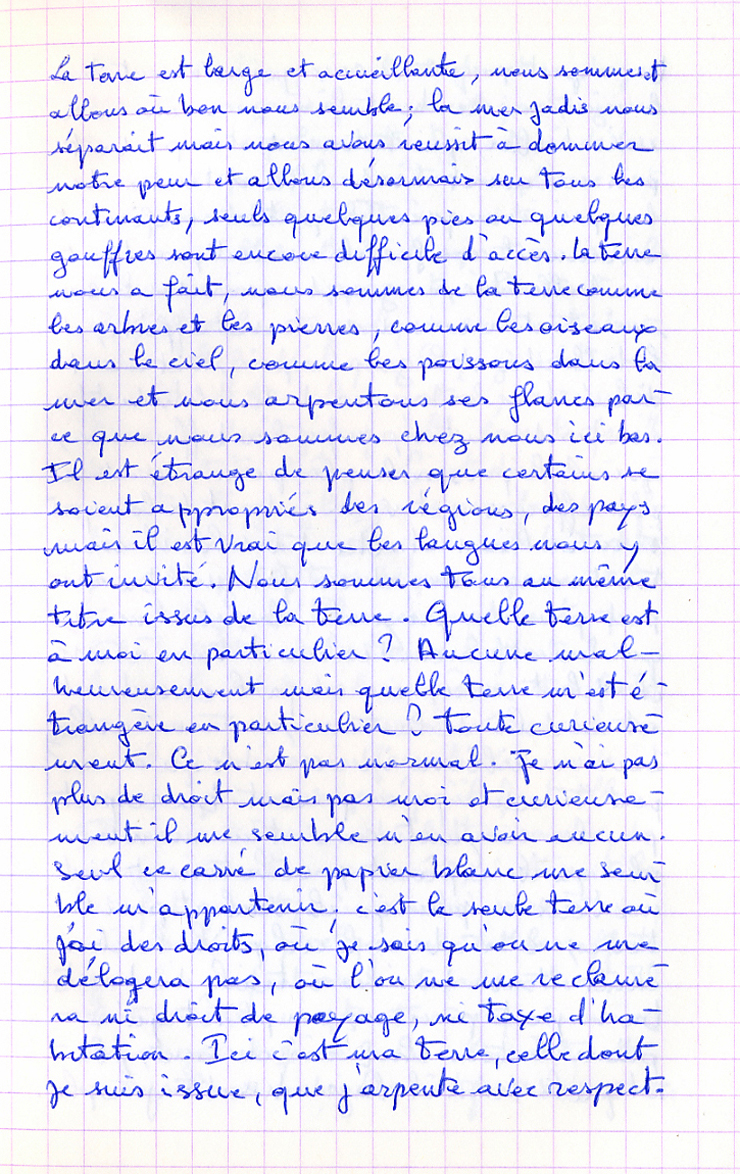 La terre est large et accueillante, nous sommes et
allons où bon nous semble; la mer jadis nous
séparait mais nous avons reussit à dominer
notre peur et allons désormais sur tous les
continants, seuls quelques pics ou quelques
gouffres sont encore difficile d'accès. la terre
nous a fait, nous sommes de la terre comme
les arbres et les pierres, comme les oiseaux
dans le ciel, comme les poissons dans la
mer et nous arpentons ses flancs par-
ce que nous sommes chez nous ici bas.
Il est étrange de penser que certains se
soient appropriés des régions, des pays
mais il est vrai que les langues nous y
ont invité. Nous sommes tous au même
titre issus de la terre. Quelle terre est
à moi en particulier ? Aucune mal-
heureusement mais quelle terre m'est é-
trangère en particulier ? toute curieuse-
ment. Ce n'est pas normal. Je n'ai pas
plus de droit mais pas moi et curieuse-
ment il me semble n'en avoir aucun.
Seul ce carré de papier blanc me sem-
ble m'appartenir; c'est la seule terre où
j'ai des droits, où je sais qu'on ne me
délogera pas, où l'on ne me reclame-
ra ni droit de payage, ni taxe d'ha-
bitation. Ici c'est ma terre, celle dont
je suis issue, que j'arpente avec respect.